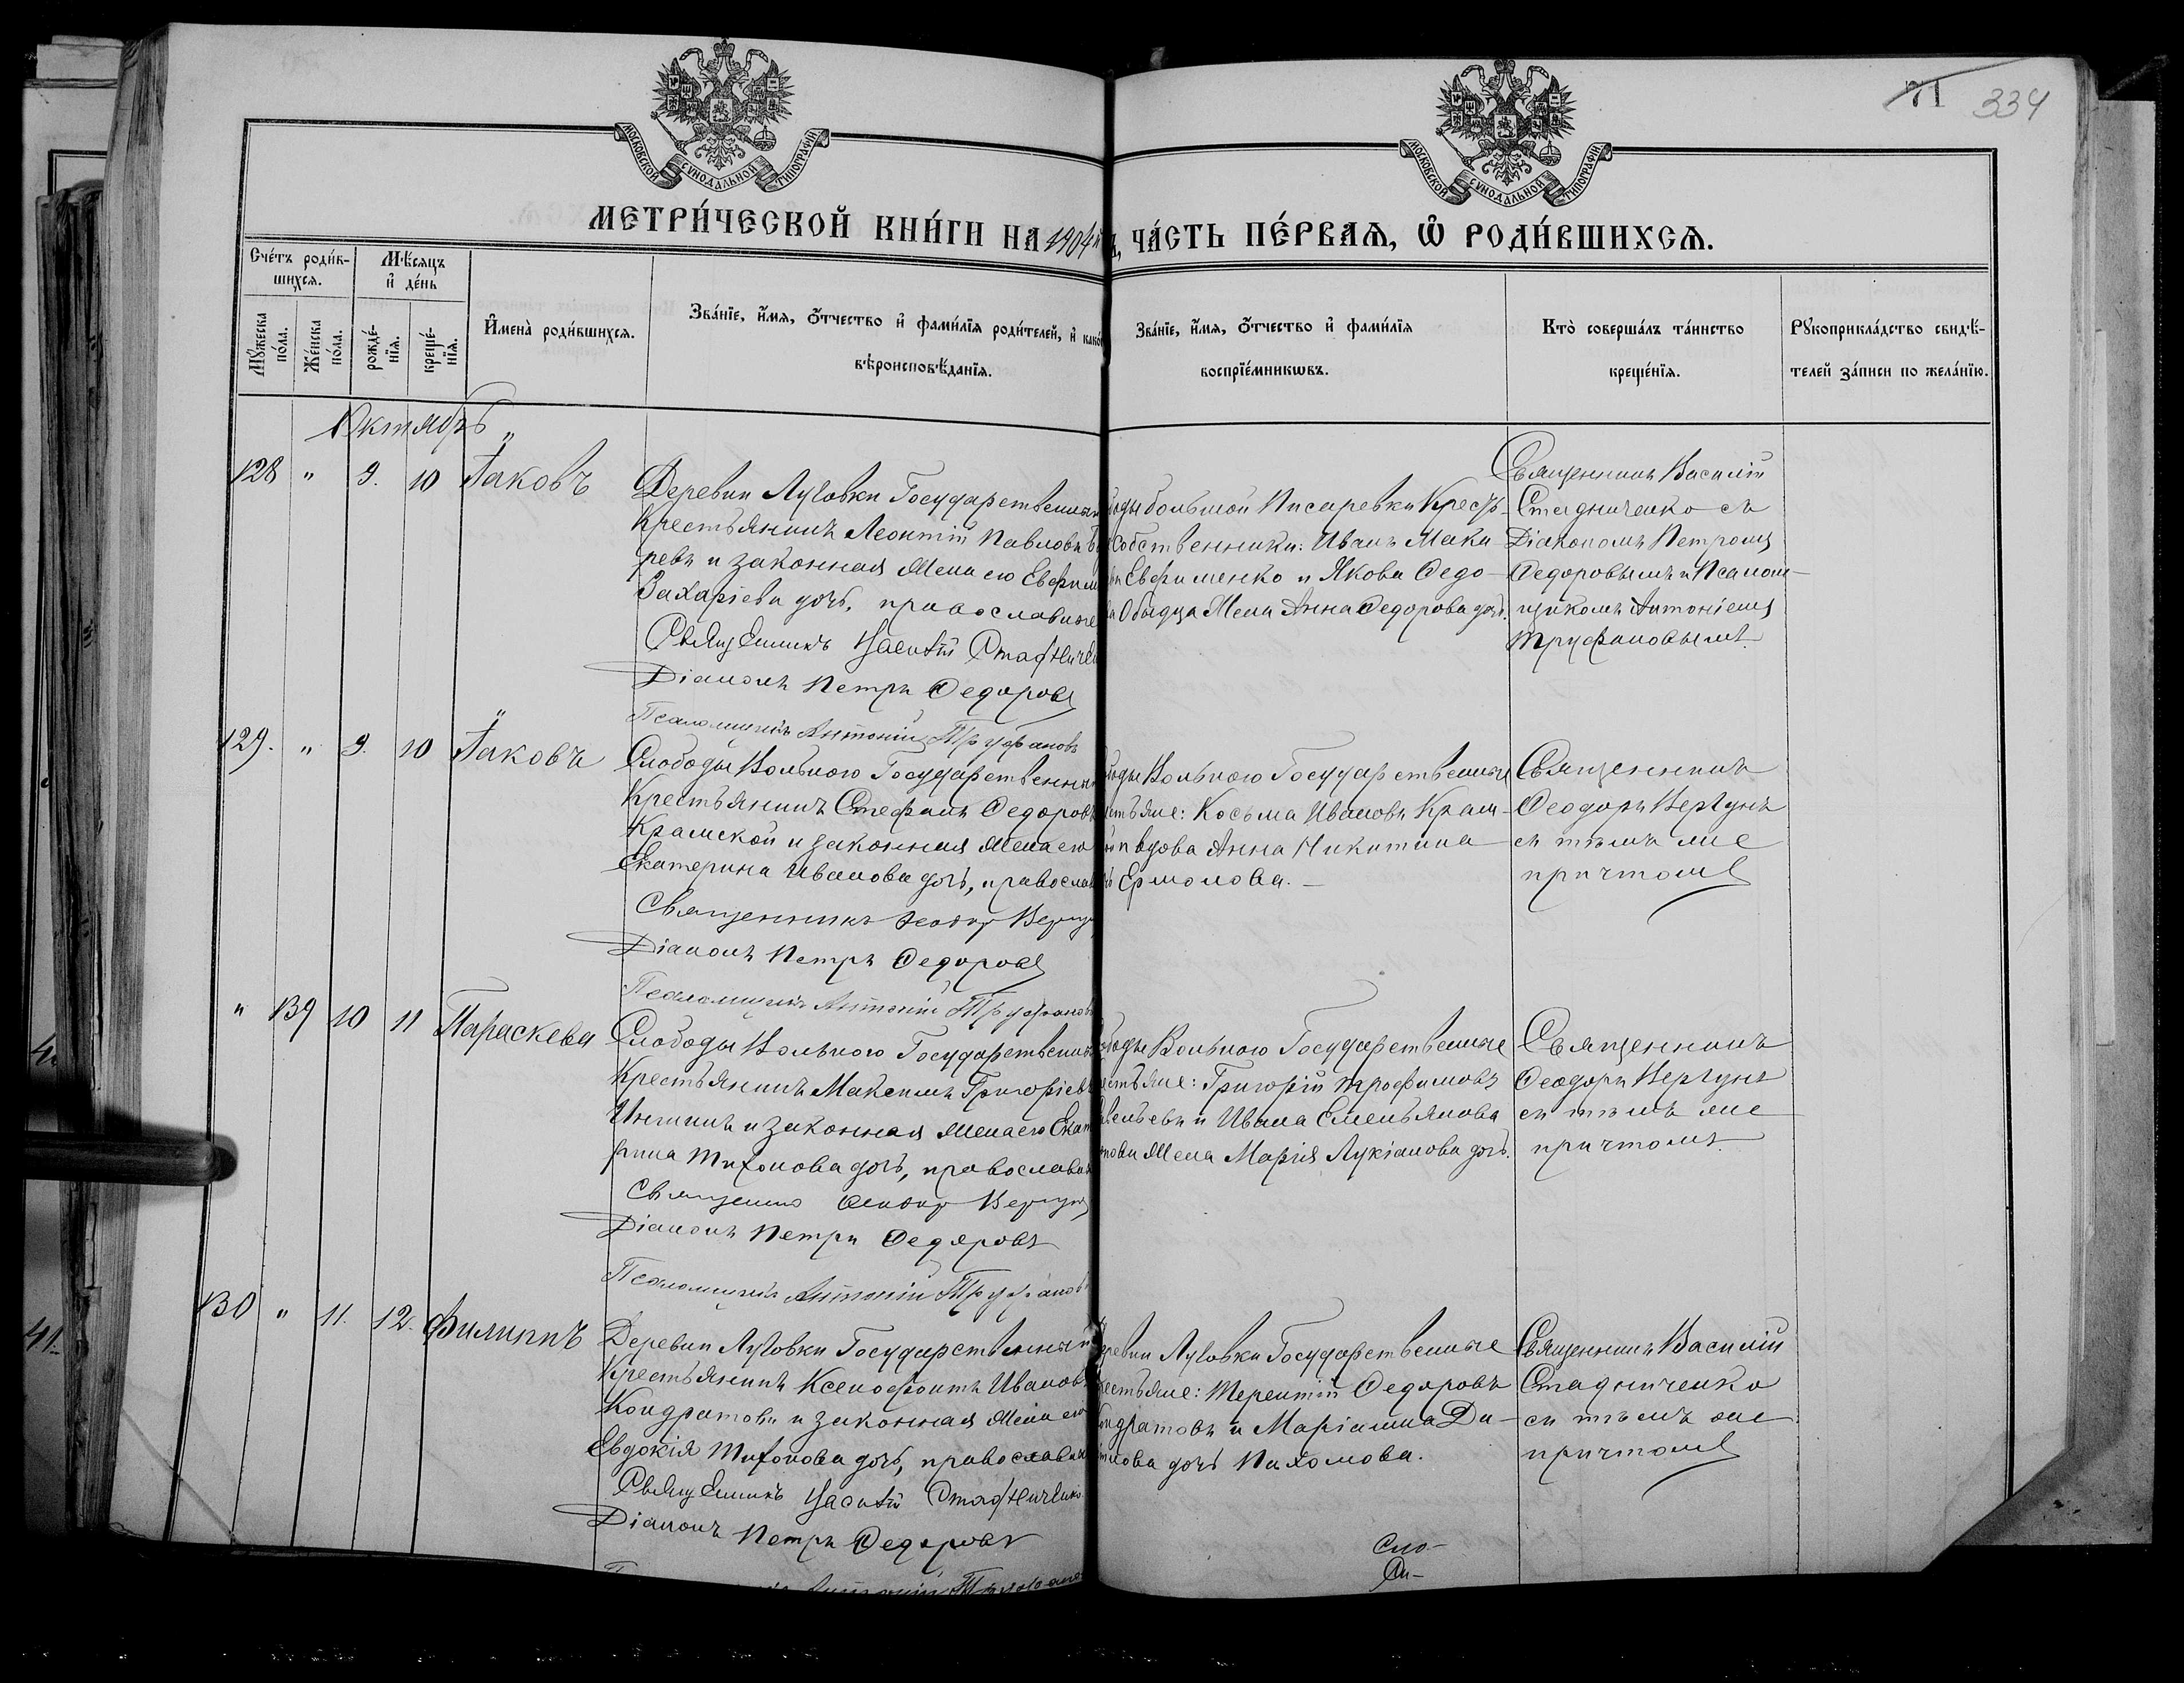 71 334
МОСКОВСКОЙ СѴНОДАЛЬНОЙ ТИПОГРАФІИ
МОСКОВСКОЙ СѴНОДАЛЬНОЙ ТИПОГРАФІИ
МЕТРИ́ЧЕСКОЙ КНИ́ГИ НА 1904й
, ЧА́СТЬ ПЕ́РВАѦ, Ѽ РОДИ́ВШИХСѦ.
Сче́тъ роди́в-
шихсѧ.
Мѣ́сѧцъ
и҆ де́нь
Мꙋ́жеска
по́ла.
Же́нска
по́ла.
рожде́-
нїѧ.
креще́-
нїѧ.
И҆мена̀ роди́вшихсѧ.
Зва́нїе, и҆́мѧ, ѻ҆́тчество и҆ фами́лїѧ роди́телей, и҆ како́
вѣроисповѣ́данїѧ.
Зва́нїе, и҆́мѧ, ѻ҆́тчество и҆ фами́лїѧ
воспрїе́мникѡвъ.
Кто̀ соверша́лъ та́инство
креще́нїѧ.
Рꙋкоприкла́дство свидѣ́-
телей за́писи по жела́нїю.
Октябрь
128 " 9. 10 Іаковъ
Деревни Луговки Государственный
Крестьянинъ Леонтій Павловъ
ревъ и законная жена его Евфим
Захаріева дочь, православные
Священникъ Василій Стадниче
Діаконъ Петръ Федоровъ
Псаломщикъ Антоній Труфановъ
боды большой Писаревки Кресть-
Собственники: Иванъ Мака-
въ Евфименко и Якова Федо-
ва Обыдца жена Анна Федорова дочь.
Священникъ Василій
Стадниченко съ
Діакономъ Петромъ
Федоровымъ и Псалом-
щикомъ Антоніемъ
Труфановымъ.
129. " 9. 10 Іаковъ
Слободы Вольного Государственный
Крестьянинъ Стефанъ Федоровъ
Крамской и законная жена его
Екатерина Иванова дочь, православ
Священникъ Феодоръ Вергун
Діаконъ Петръ Федоровъ
Псаломщикъ Антоній Труфановъ
боды Вольного Государственные
стьяне: Косьма Ивановъ Крам-
й и вдова Анна Никитина
ь Ермолова.
Священникъ
Феодоръ Вергунъ
съ тѣмъ же
причтомъ
" 139 10 11 Параскева
Слободы Вольного Государственный
Крестьянинъ Максимъ Григорьевъ
и законная жена его Екат
рина Тихонова дочь, православн
Священник Феодор Вергунъ
Діаконъ Петръ Федоровъ
Псаломщикъ Антоній Труфановъ
ободы Вольного Государственные
естьяне: Григорій Трофимовъ
вельевъ и Ивана Емельянова
нова жена Марія Лукіанова дочь.
Священникъ
Феодоръ Вергунъ
съ тѣмъ же
причтомъ.
130 " 11. 12. Филиппъ
Деревни Луговки Государственный
Крестьянинъ Ксенофонтъ Ивановъ
Кондратовъ и законная жена его
Евдокія Тихонова дочь, православн
Священникъ Василій Стадниченко
Діаконъ Петръ Федоровъ
Антоній Труфано
еревни Луговки Государственные
рестьяне: Терентій Федоровъ
Кондратовъ и Маріанна Да-
нилова дочь Пахомова.
Священникъ Василій
Стадниченко
съ тѣмъ же
причтомъ
40
41.